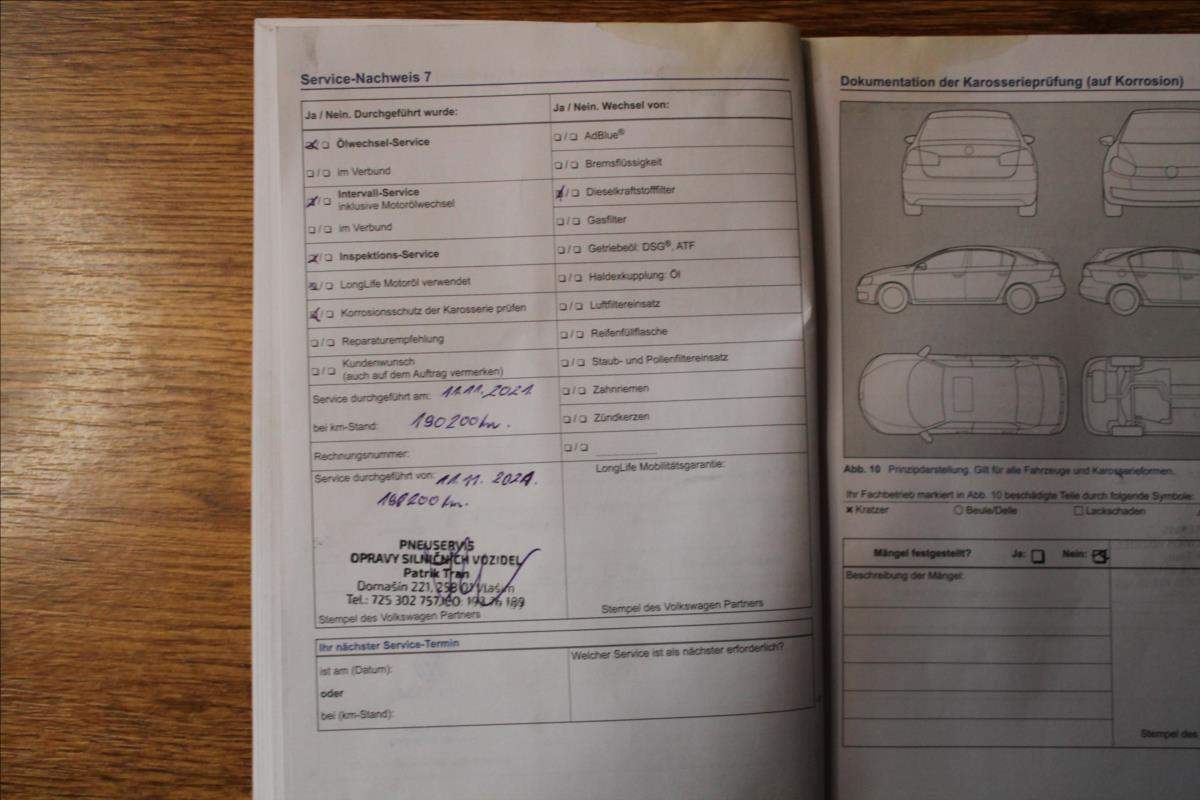 Service-Nachweis 7
Ja / Nein. Durchgeführt wurde:
Ölwechsel-Service
im Verbund
Intervall-Service
inklusive Motorölwechsel
im Verbund
Inspektions-Service
LongLife Motoröl verwendet
Korrosionsschutz der Karosserie prüfen
Reparaturempfehlung
Kundenwunsch
(auch auf dem Auftrag vermerken)
Service durchgeführt am: 11.11.2021
bei km-Stand: 190200km.
Rechnungsnummer:
Service durchgeführt von: 11.11.2021.
km.
PNEUSERVIS
OPRAVY SILNIČNÍCH VOZIDEL
Patrik Tran
Domašín 221, 258 01 Vlašim
Tel.: 725 302 757, IČO:
Stempel des Volkswagen Partners
Ja / Nein. Wechsel von:
AdBlue®
Bremsflüssigkeit
Dieselkraftstofffilter
Gasfilter
Getriebeöl: DSG®, ATF
Haldexkupplung: Öl
Luftfiltereinsatz
Reifenfüllflasche
Staub- und Pollenfiltereinsatz
Zahnriemen
Zündkerzen
LongLife Mobilitätsgarantie:
Stempel des Volkswagen Partners
Ihr nächster Service-Termin
ist am (Datum):
oder
bei (km-Stand):
Welcher Service ist als nächster erforderlich?
Dokumentation der Karosserieprüfung (auf Korrosion)
Abb. 10 Prinzipdarstellung. Gilt für alle Fahrzeuge und Karosserieformen.
Ihr Fachbetrieb markiert in Abb. 10 beschädigte Teile durch folgende Symbole:
Kratzer Beule/Delle Lackschaden
Mängel festgestellt? Ja: Nein:
Beschreibung der Mängel:
Stempel des